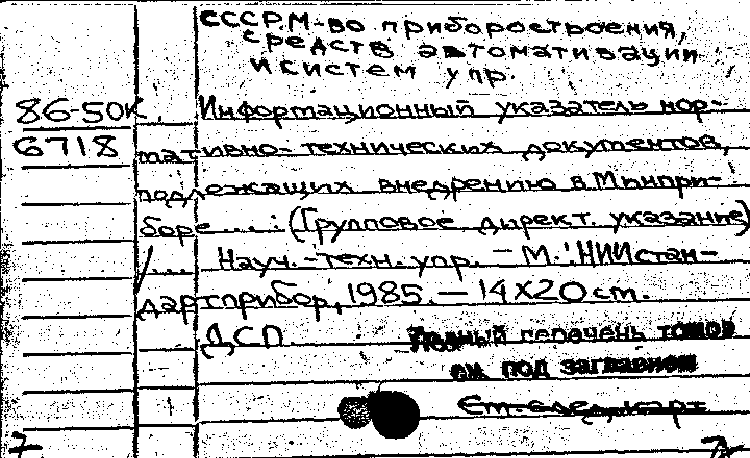 СССР. М-во приборостроения,
средств автоматизации
и систем упр.
86-50К. Информационный указатель нор-
6718 мативно-технических документов,
подлежащих внедрению в Минпри-
боре ....: (Групповое директ. указание)
/.... Науч.-техн. упр. - М.: НИИстан-
дартприбор, 1985. - 14х20 см.
ДСП Полный перечень томов
см. под заглавием
См. след. карт